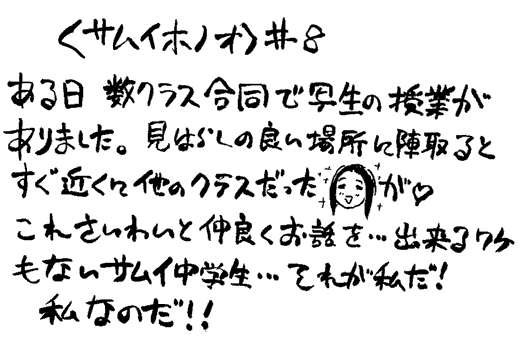 〈サムイホノオ〉#8
ある日 数クラス合同で写生の授業が
ありました。見はらしの良い場所に陣取ると
すぐ近くに他のクラスだったが♡
これさいわいと仲良くお話を…出来るワケ
もないサムイ中学生…それが私だ!
私なのだ!!